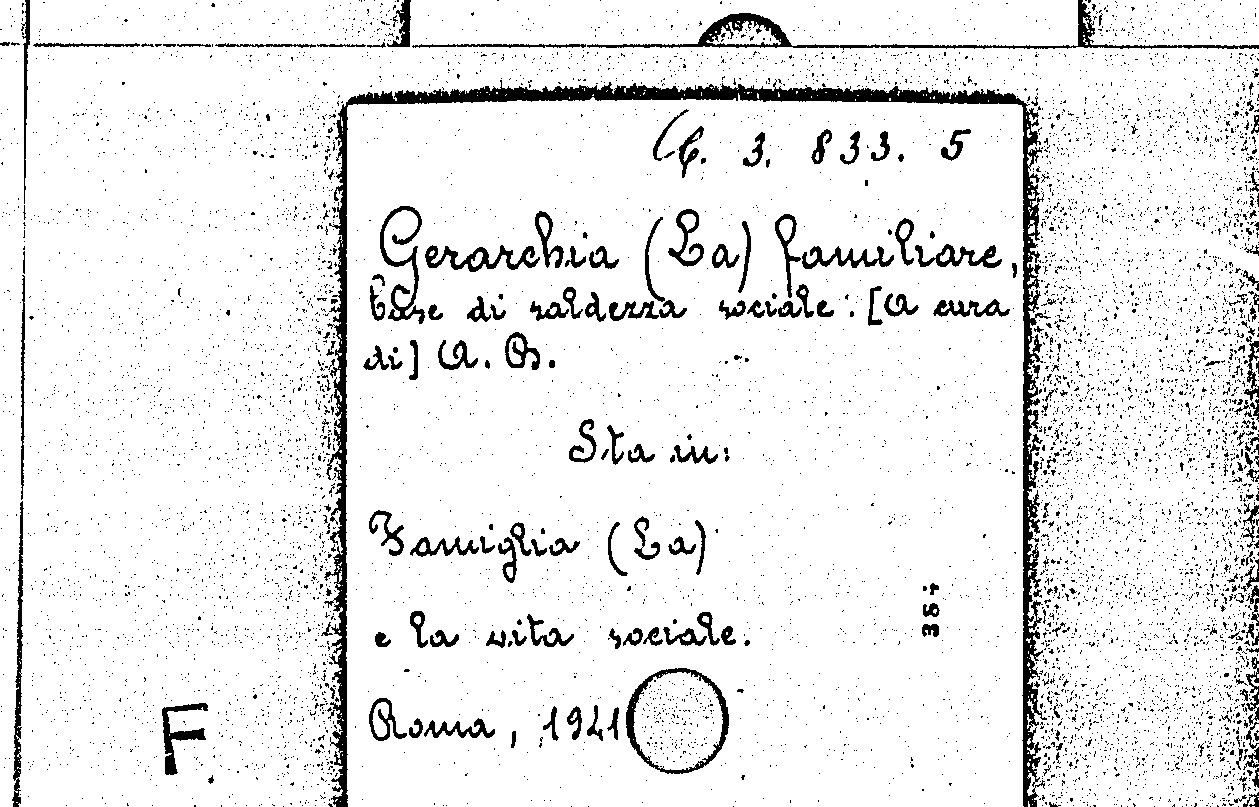 C. 3. 833. 5
Gerarchia (La) familiare,
base di saldezza sociale: [A cura
di] A. B.
Sta in:
Famiglia (La)
e la vita sociale.
Roma, 1941
F